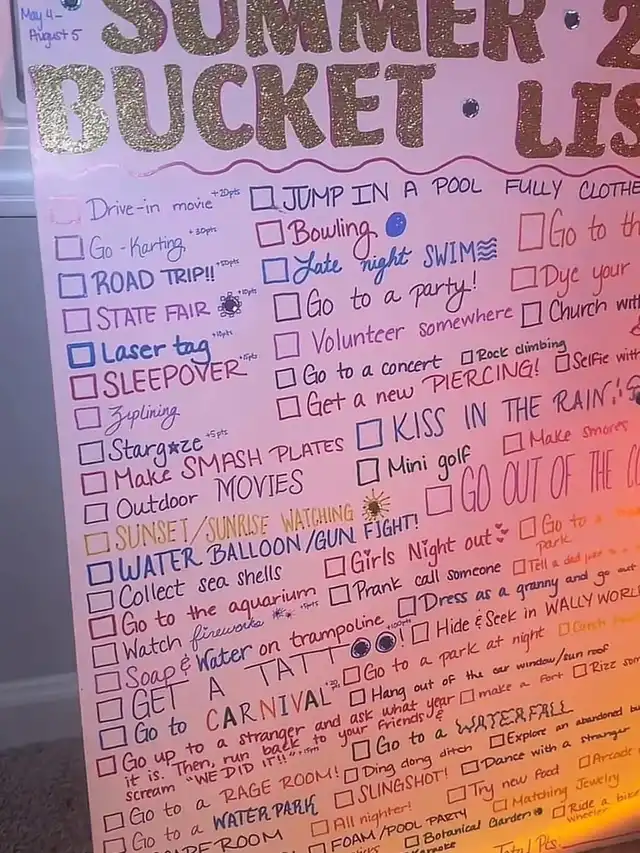 May 4-
August 5
SUMMER 2
BUCKET LIS
Drive-in movie +20pts
JUMP IN A POOL FULLY CLOTHE
Go-Karting +30pts
Bowling
Go to th
ROAD TRIP!!
Late night SWIM
STATE FAIR +10pts
Go to a party!
Dye your
Laser tag +10pts
Volunteer somewhere
Church wit
SLEEPOVER +5pts
Go to a concert
Rock climbing
Ziplining
Get a new PIERCING!
Selfie with
Starg★ze +5pts
KISS IN THE RAIN!
Make SMASH PLATES
Mini golf
Make smores
Outdoor MOVIES
GO OUT OF THE CO
SUNSET/SUNRISE WATCHING
WATER BALLOON/GUN FIGHT!
Collect sea shells
Girls Night out
Go to a
park
Go to the aquarium
Prank call someone
Tell a dad
Watch fireworks +5pts
Dress as a granny and go out
Soap & Water on trampoline
Hide & Seek in WALLY WORL
GET A TATTOO! +100pts
Go to a park at night
Go to CARNIVAL
Hang out of the car window/sun roof
Go up to a stranger and ask what year
it is. Then, run back to your friends &
scream "WE DID IT!!" +15pts
make a fort
Rizz som
Go to a WATERFALL
Go to a RAGE ROOM!
Ding dong ditch
Explore an abandoned bu
Go to a WATER PARK
SLINGSHOT!
Dance with a stranger
APE ROOM
All nighter!
Try new food
Arcade
FOAM/POOL PARTY
Matching Jewelry
Botanical Garden
Ride a bike
wheeler
Karaoke
Total Pts: